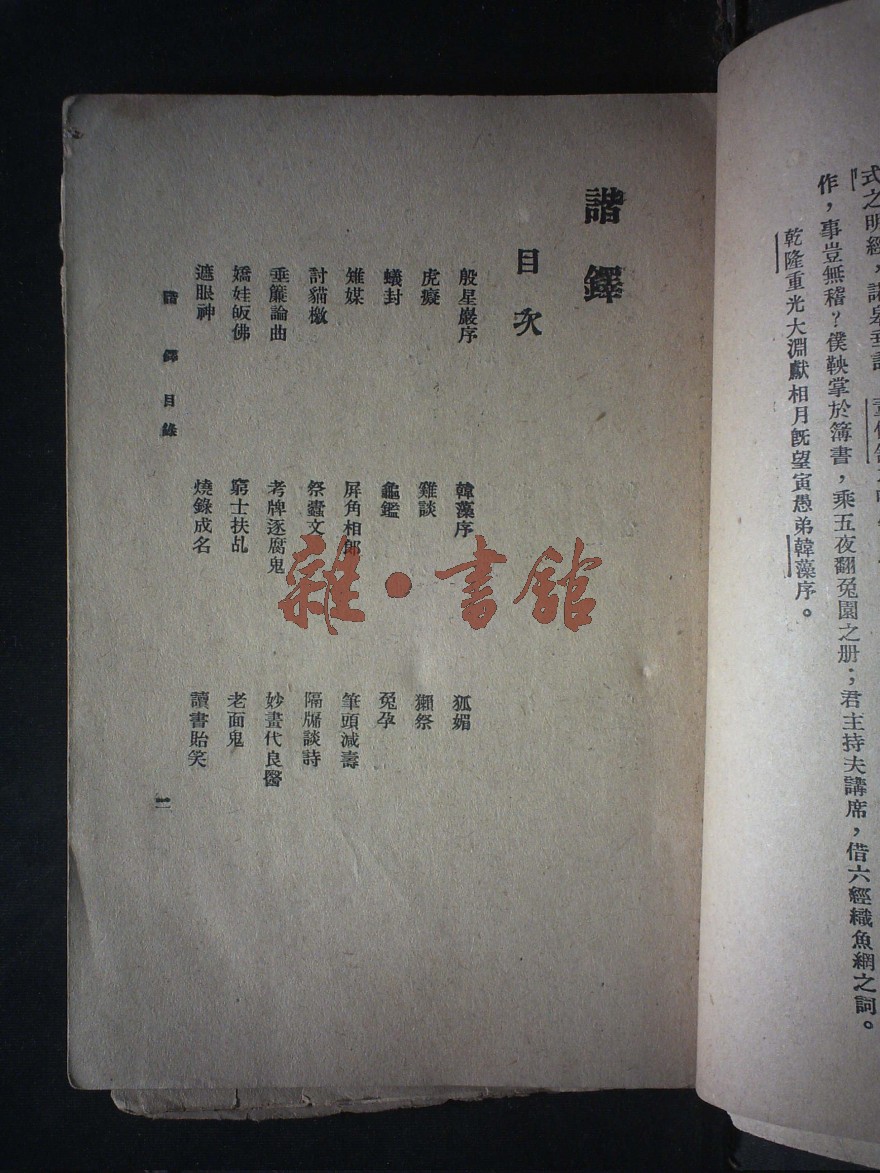 式之明經
作，事豈無稽？僕鞅掌於簿書，乘五夜翻兔園之册；君主持夫講席，借六經織魚網之詞。
乾隆重光大淵獻相月旣望寅愚弟韓藻序。
諧鐸
目次
殷星巖序 韓藻序 狐媚
虎癡 雞談 獺祭
蟻封 龜鑑 兔孕
雉媒 屏角相郎 筆頭減壽
討貓檄 祭蠹文 隔牖談詩
垂簾論曲 考牌逐腐鬼 妙畫代良醫
嬌娃皈佛 窮士扶乩 老面鬼
遮眼神 燒錄成名 讀書貽笑
諧鐸目錄
一
雜·書館